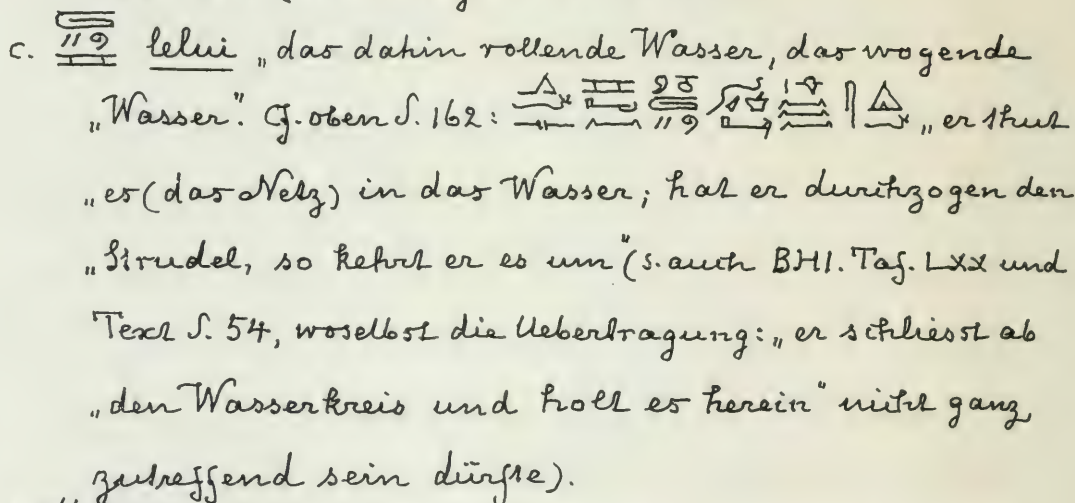 c. lelui „das dahin rollende Wasser, das wogende
„Wasser“. Cf. oben S. 162: „er thut
„es (das Netz) in das Wasser; hat er durchzogen den
„Strudel, so kehrt er es um“ (s. auch BHI. Taf. LXX und
Text S. 54, woselbst die Uebertragung: „er schliesst ab
„den Wasserkreis und holt es herein“ nicht ganz
zutreffend sein dürfte).